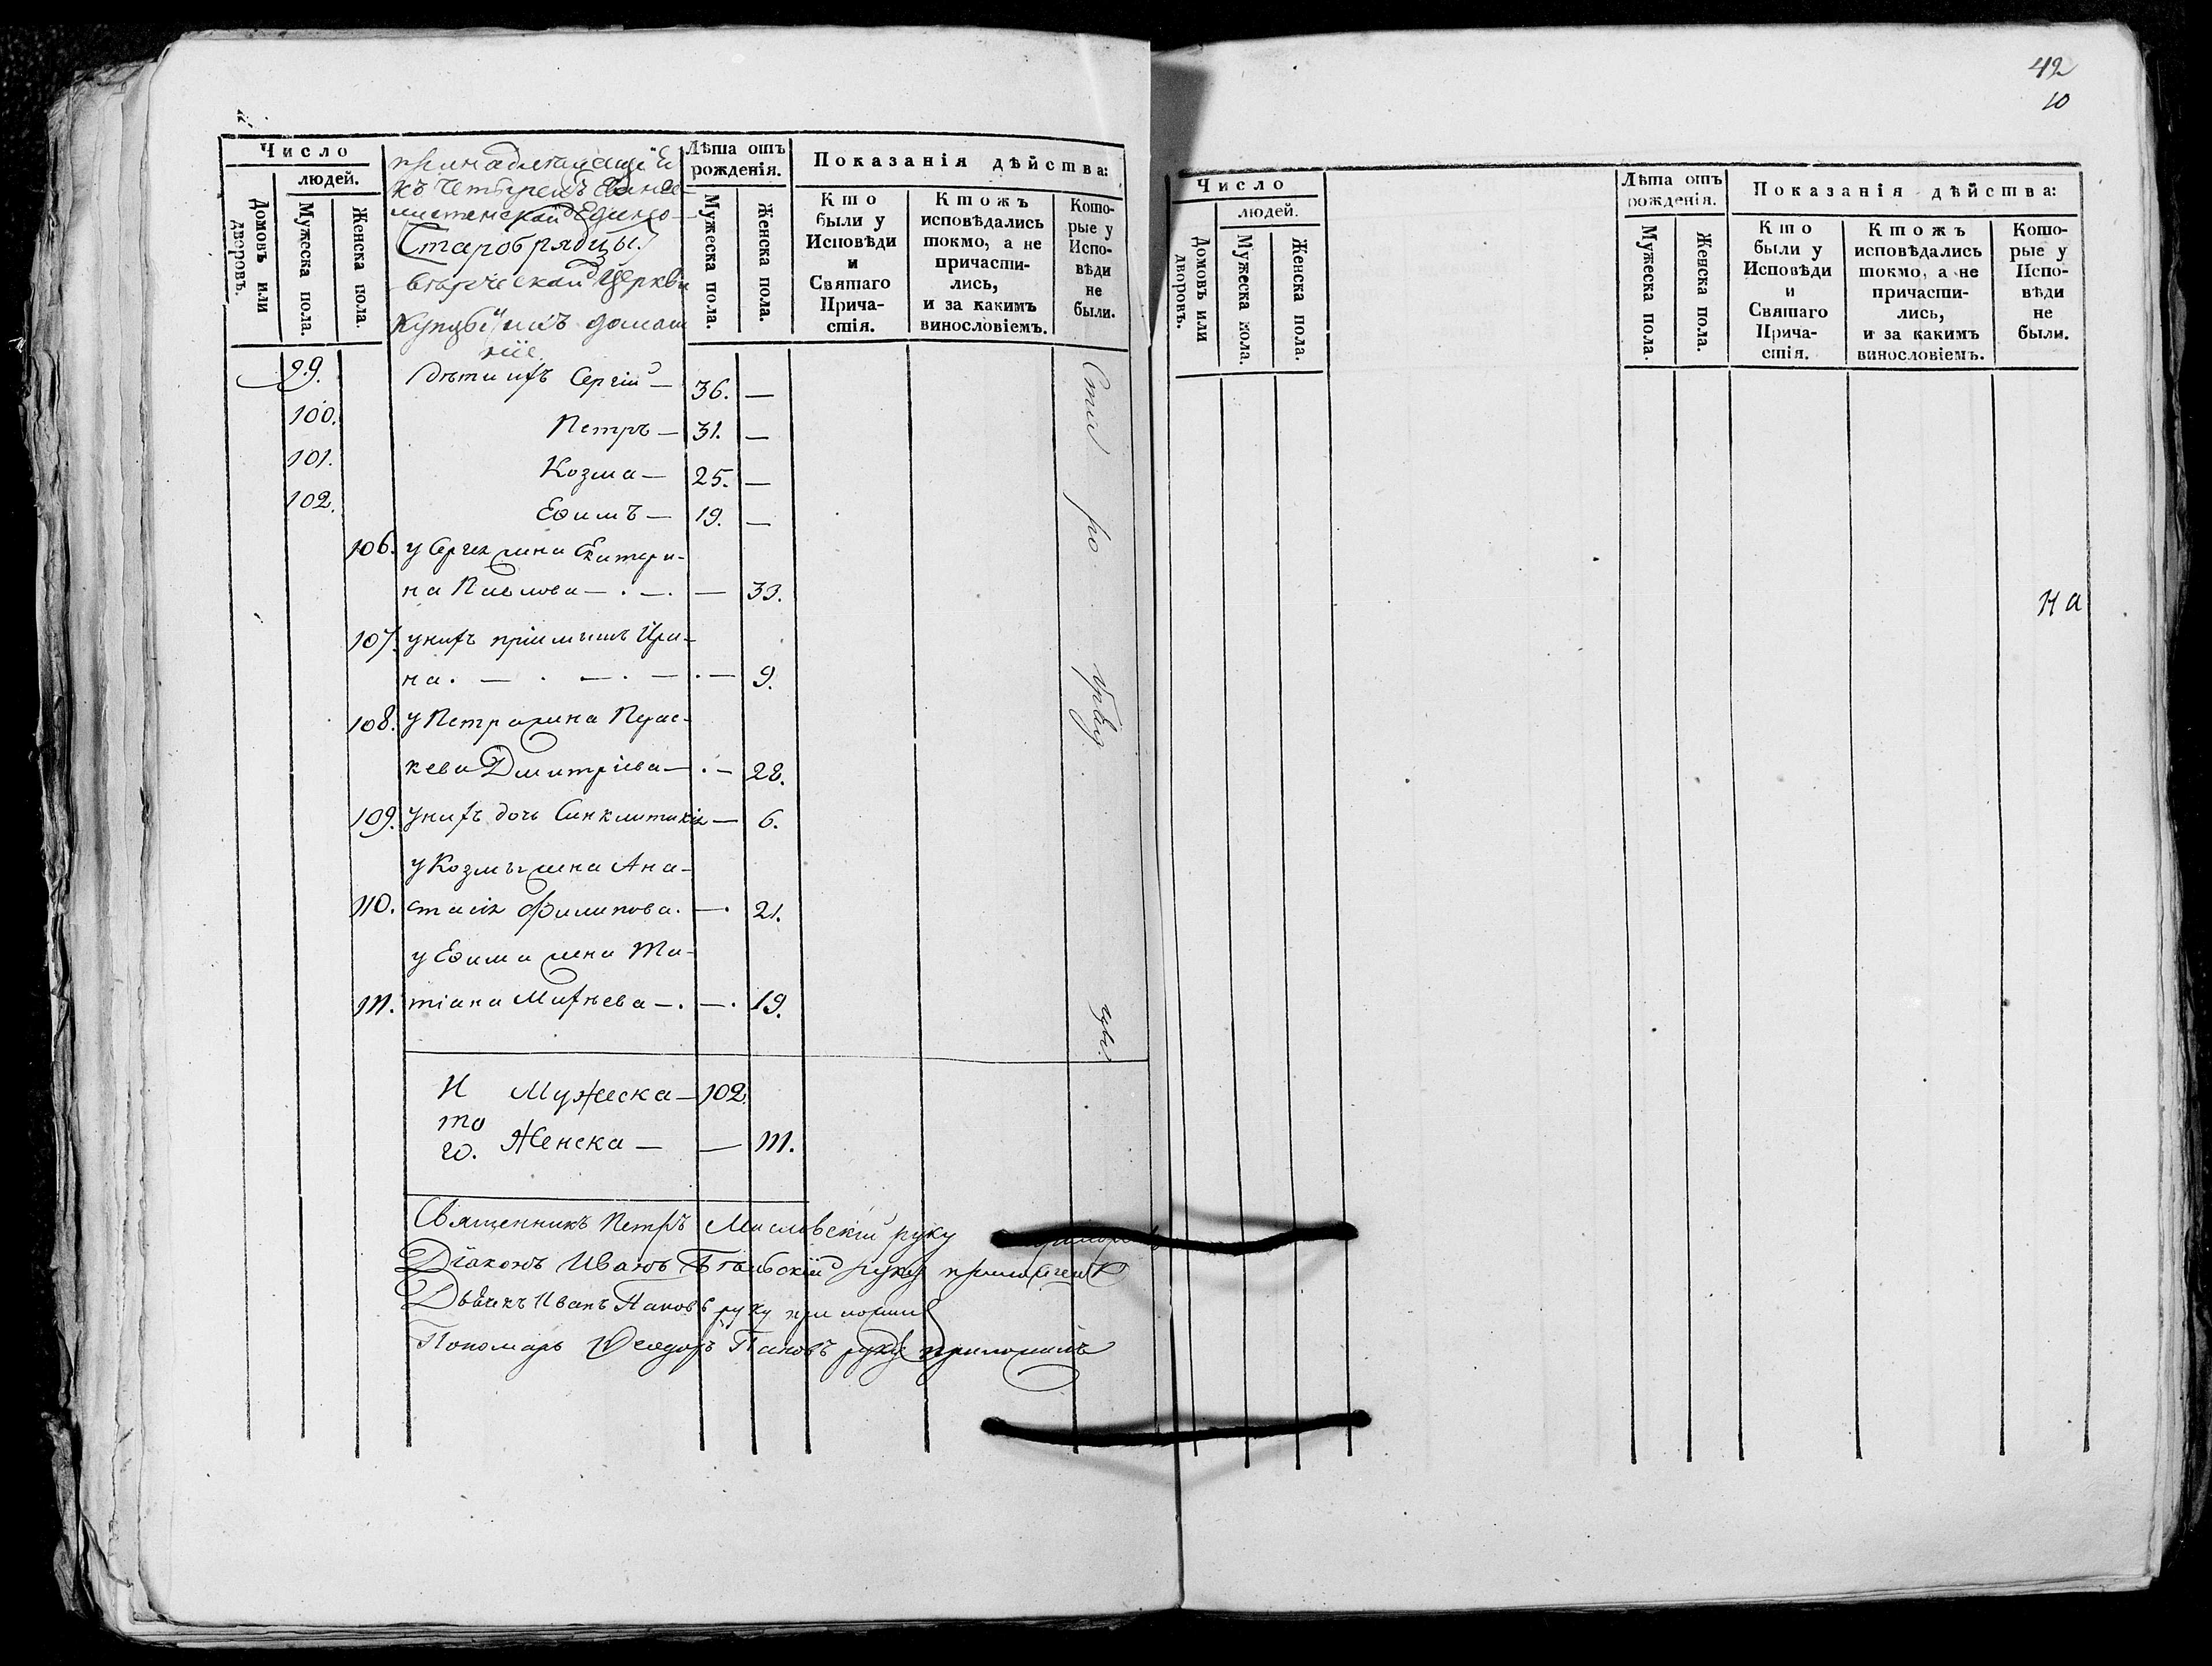 Число
людей.
Домовъ или дворовъ.
Мужеска пола.
Женска пола.
принадлежащiе
къ Четырехъ Еванге-
листенской Единo-
Старобрядцы.
верческой Церкви
Купцы и ихъ домаш
нiе.
Лѣта отъ рожденiя.
Мужеска пола.
Женска пола.
Показанiя дѣйства:
Кто были у Исповѣди и Святаго Причастiя.
Ктожъ исповѣдались токмо, а не причастились, и за какимъ винословiемъ.
Которые у Исповѣди не были.
99. дѣти ихъ Сергiй — 36. —
100. Петръ — 31. —
101. Козма — 25. —
102. Ефимъ — 19. —
106. у Сергея жена Екатери-
на Павлова — . — . — 33.
107. у нихъ прiимышъ Ири-
на . — . — . — . — 9.
108. у Петра жена Парас-
кева Дмитрiева — . — 28.
109. у нихъ дочь Синклитикiя — 6.
у Козмы жена Ана-
110. стасiя Филипова . — . 21.
у Ефима жена Та-
111. тiана Михѣева — . — . 19.
И Мужеска — 102.
то
го. Женска — — 111.
Священникъ Петръ Масловскiй руку
Дiаконъ Иванъ руку приложилъ
Дьячекъ Иванъ Пановъ руку приложилъ
Пономарь Феодоръ Пановъ руку приложилъ
42
10
Число
людей.
Домовъ или дворовъ.
Мужеска пола.
Женска пола.
Лѣта отъ рожденiя.
Мужеска пола.
Женска пола.
Показанiя дѣйства:
Кто были у Исповѣди и Святаго Причастiя.
Ктожъ исповѣдались токмо, а не причастились, и за какимъ винословiемъ.
Которые у Исповѣди не были.
на